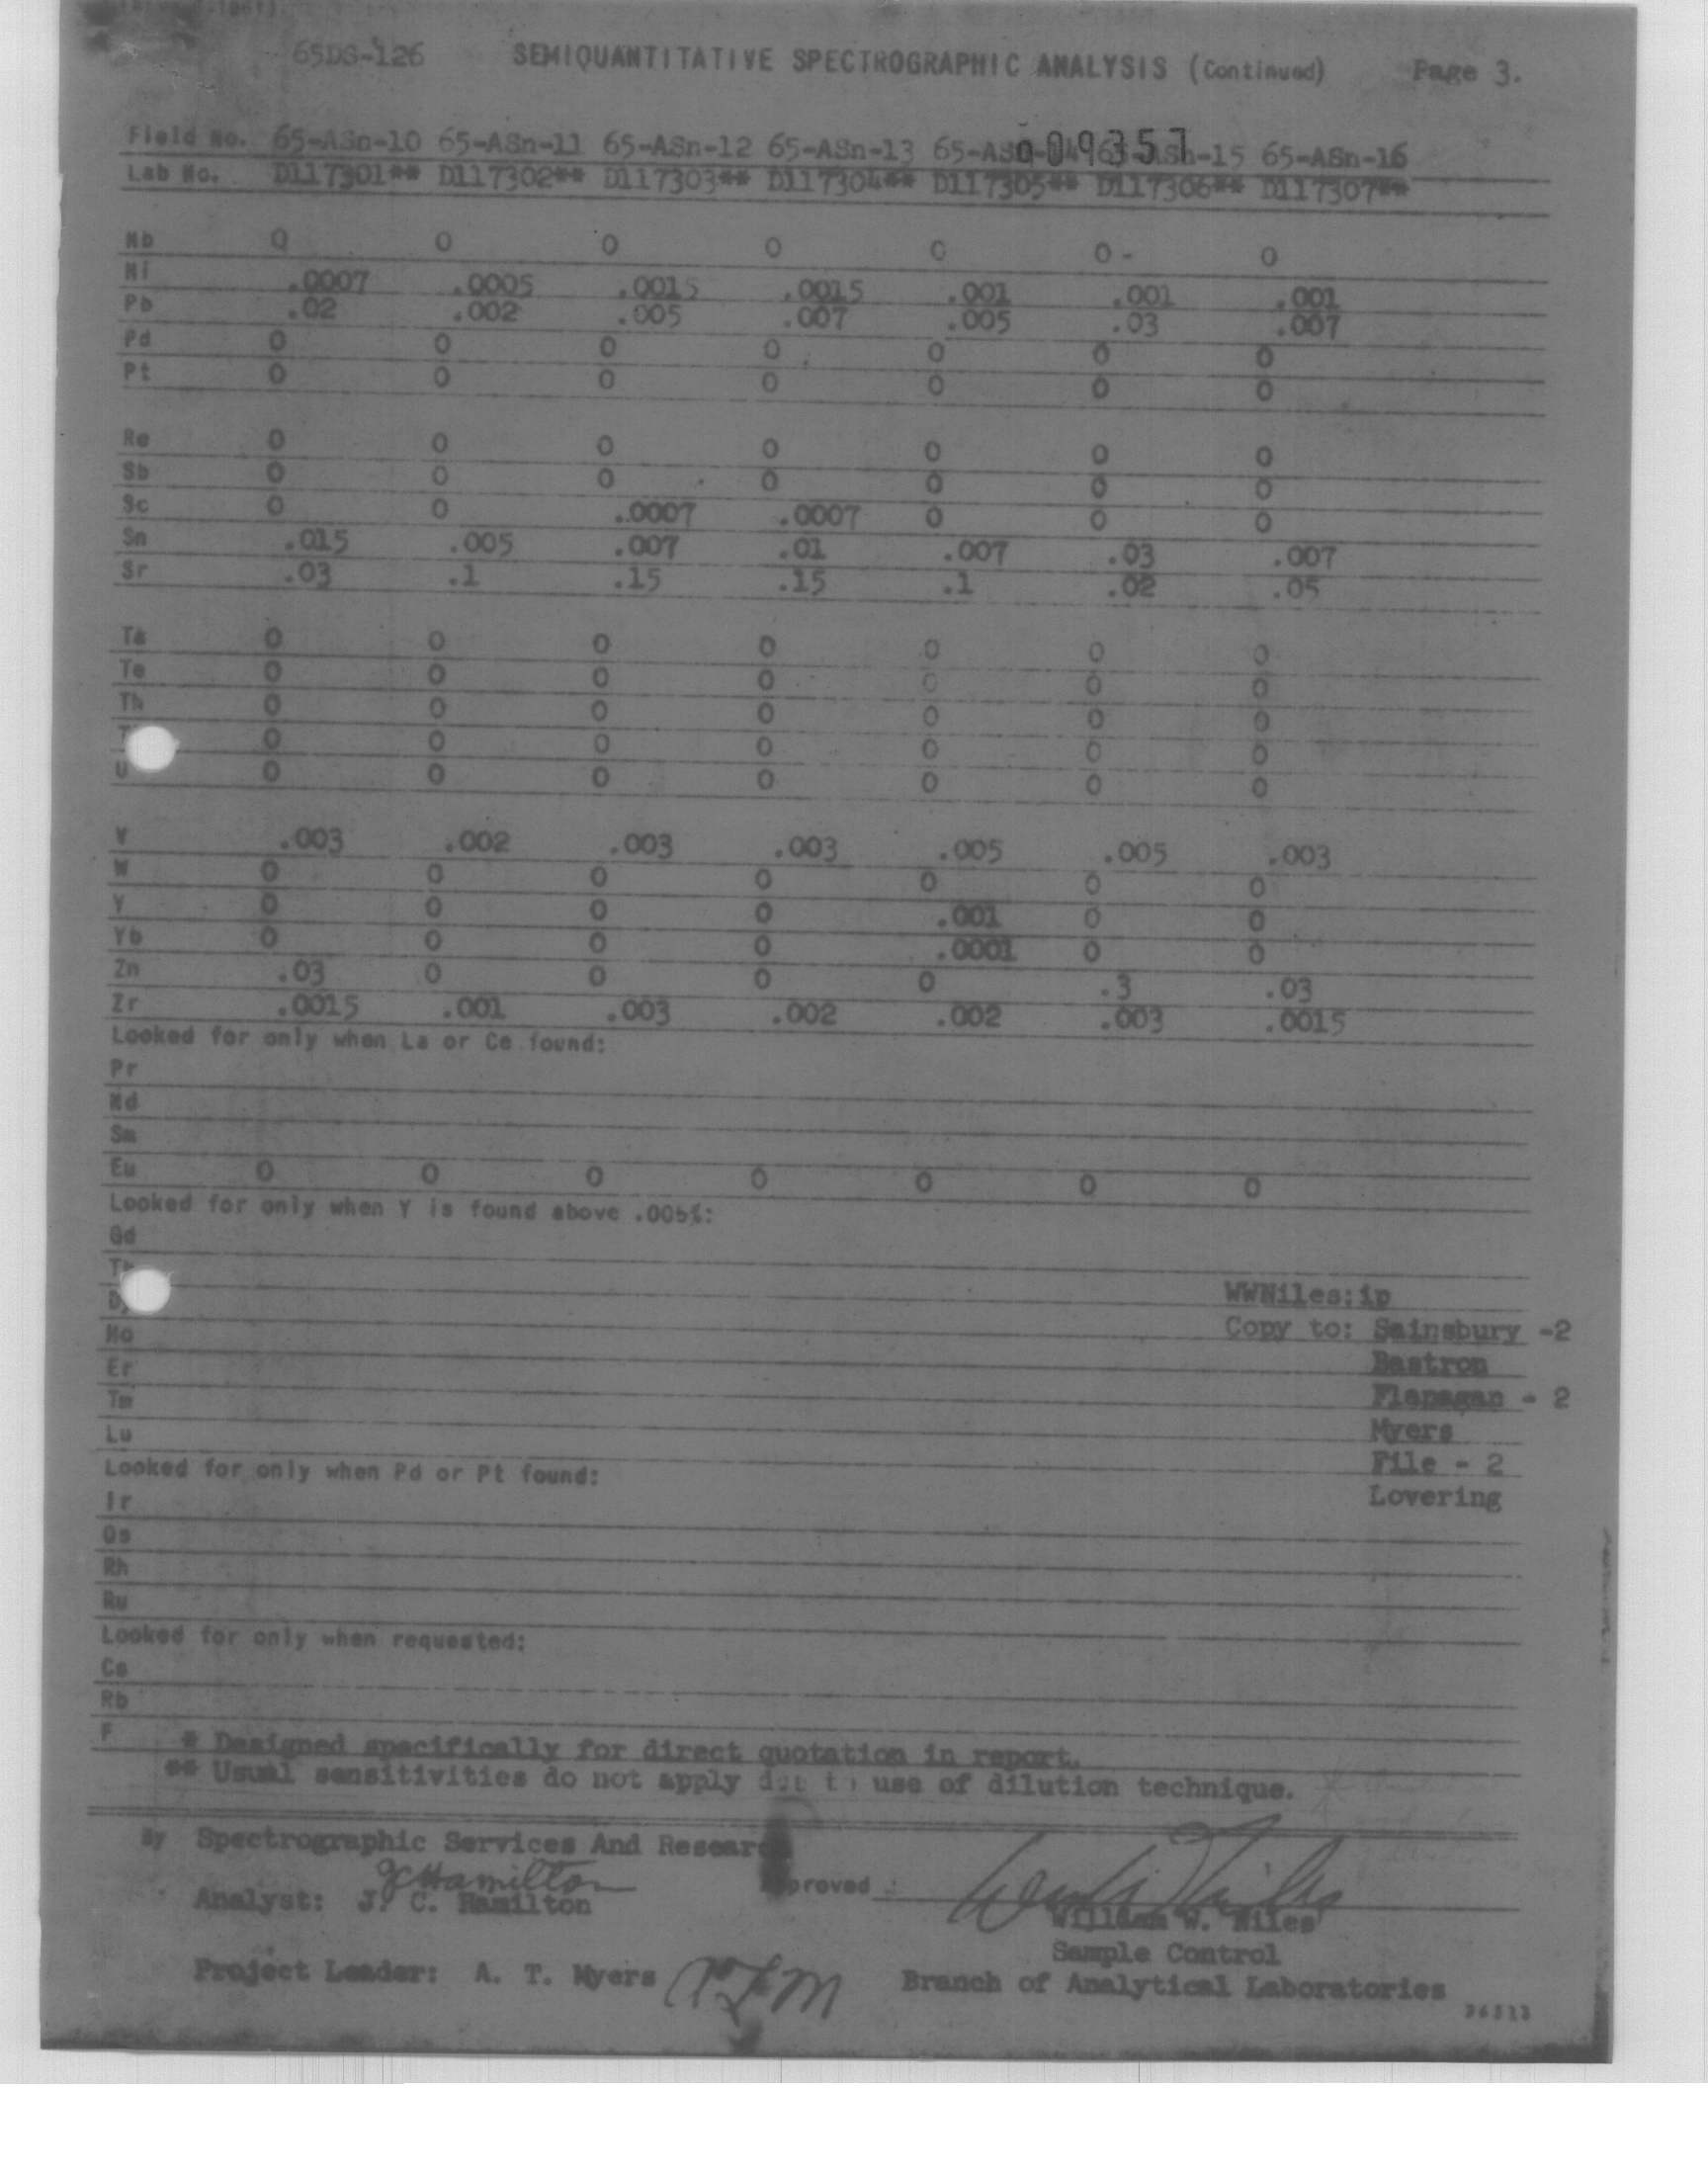 65DS-126 SEMIQUANTITATIVE SPECTROGRAPHIC ANALYSIS (Continued) Page 3.
009357
Field No. 65-ASn-10 65-ASn-11 65-ASn-12 65-ASn-13 65-ASn-15 65-ASn-16
Lab No. D117301** D117302** D117303** D117304** D117305** D117306** D117307**
Nb 0 0 0 0 0 0 - 0
Ni .0007 .0005 .0015 .0015 .001 .001 .001
Pb .02 .002 .005 .007 .005 .03 .007
Pd 0 0 0 0 0 0 0
Pt 0 0 0 0 0 0 0
Re 0 0 0 0 0 0 0
Sb 0 0 0 0 0 0 0
Sc 0 0 .0007 .0007 0 0 0
Sn .015 .005 .007 .01 .007 .03 .007
Sr .03 .1 .15 .15 .1 .02 .05
Ta 0 0 0 0 0 0 0
Te 0 0 0 0 0 0 0
Th 0 0 0 0 0 0 0
0 0 0 0 0 0 0
U 0 0 0 0 0 0 0
V .003 .002 .003 .003 .005 .005 .003
W 0 0 0 0 0 0 0
Y 0 0 0 0 .001 0 0
Yb 0 0 0 0 .0001 0 0
Zn .03 0 0 0 0 .3 .03
Zr .0015 .001 .003 .002 .002 .003 .0015
Looked for only when La or Ce found:
Pr
Nd
Sm
Eu 0 0 0 0 0 0 0
Looked for only when Y is found above .005%:
Gd
WWNiles:ip
Ho
Copy to: Sainsbury -2
Er
Bastron
Tm
Flanagan - 2
Lu
Myers
Looked for only when Pd or Pt found:
File - 2
Ir
Lovering
Os
Rh
Ru
Looked for only when requested:
Cs
Rb
F
* Designed specifically for direct quotation in report.
** Usual sensitivities do not apply due to use of dilution technique.
By Spectrographic Services And Research
JCHamilton
Analyst: J. C. Hamilton
Approved :
William W. Niles
Sample Control
Project Leader: A. T. Myers ATM
Branch of Analytical Laboratories
36313